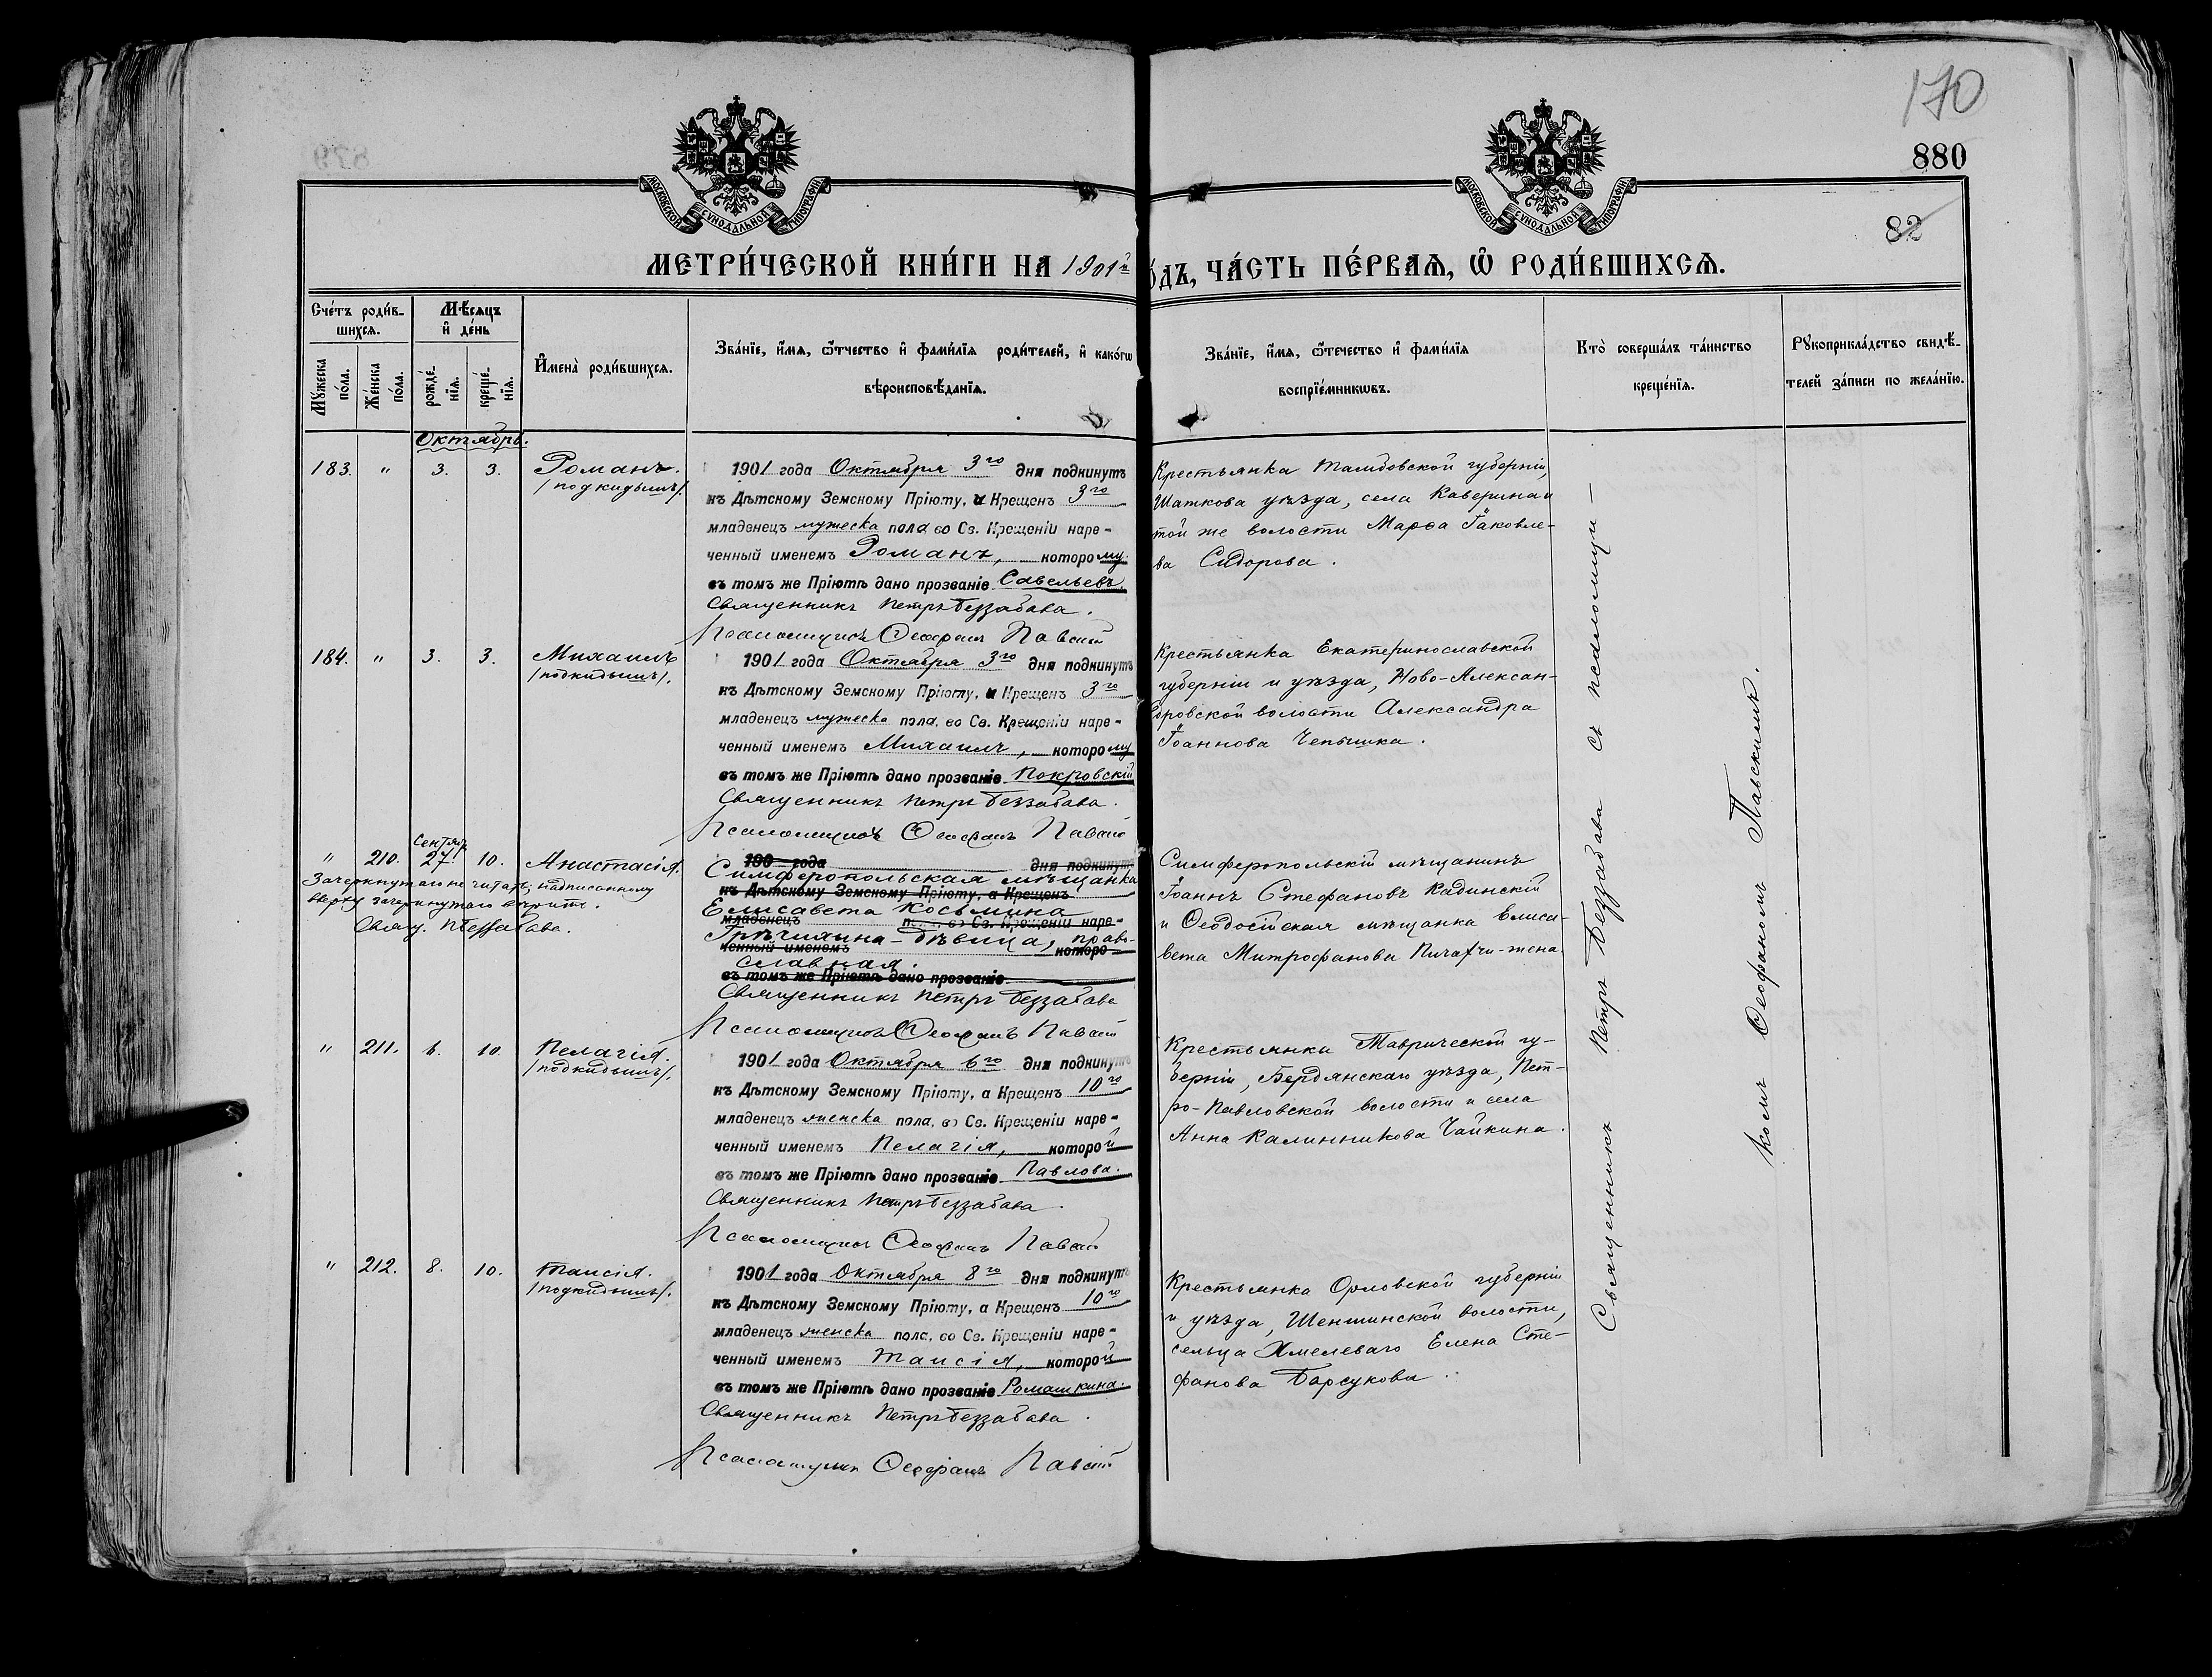 170
880
82
МОСКОВСКОЙ СѴНОДАЛЬНОЙ ТИПОГРАФІИ
МОСКОВСКОЙ СѴНОДАЛЬНОЙ ТИПОГРАФІИ
МЕТРИ́ЧЕСКОЙ КНИ́ГИ НА 1901й
О́ДЪ, ЧА́СТЬ ПЕ́РВАѦ, Ѡ҆ РОДИ́ВШИХСѦ.
Сче́тъ роди́в-
шихсѧ.
Мѣ́сѧцъ
и҆ де́нь
Мꙋ́жеска
по́ла.
Же́нска
по́ла.
рожде́-
нїѧ.
креще́-
нїѧ.
И҆мена̀ роди́вшихсѧ.
Зва́нїе, и҆́мѧ, ѻ҆́тчество и҆ фами́лїѧ роди́телей, и҆ како́гѡ
вѣроисповѣ́данїѧ.
Зва́нїе, и҆́мѧ, ѻ҆́течество и҆ фами́лїѧ
воспрїе́мникѡвъ.
Кто̀ соверша́лъ та́инство
креще́нїѧ.
Рꙋкоприкла́дство свидѣ́-
телей за́писи по жела́нїю.
Октябрь.
183. " 3. 3. Романъ.
/подкидышъ/.
1901 года Октября 3го дня подкинутъ
къ Дѣтскому Земскому Пріюту, и Крещенъ 3го
младенецъ мужеска пола, во Св. Крещеніи наре-
ченный именемъ Романъ, которому
въ томъ же Пріютѣ дано прозваніе Савельевъ.
Священникъ Петръ Беззабава.
Псаломщикъ Ѳеофанъ Павскій
Крестьянка Тамбовской губерніи,
Шацкова уѣзда, села Каверина и
той же волости Марѳа Іаковле-
ва Сидорова.
184. " 3. 3. Михаилъ
/подкидышъ/.
1901 года Октября 3го дня подкинутъ
къ Дѣтскому Земскому Пріюту, и Крещенъ 3го
младенецъ мужеска пола, во Св. Крещеніи наре-
ченный именемъ Михаилъ, которому
въ томъ же Пріютѣ дано прозваніе Покровскій
Священникъ Петръ Беззабава.
Псаломщикъ Ѳеофанъ Павскій
Крестьянка Екатеринославской
губерніи и уѣзда, Ново-Алексан-
дровской волости Александра
Іоаннова
" 210. Сентяб. 27. 10. Анастасія.
Зачеркнутаго не читать; надписанному
вверху зачеркнутаго вѣрить.
Свящ. П. Беззабава.
190 года дня подкинутъ
Симферопольская мѣщанка
къ Дѣтскому Земскому Пріюту, а Крещенъ
Елисавета Косьмина
младенецъ пола, во Св. Крещеніи наре-
Грѣчихина - дѣвица, право-
ченный именемъ которо
славная.
въ томъ же Пріютѣ дано прозваніе
Священникъ Петръ Беззабава
Псаломщикъ Ѳеофанъ Павскій
Симферопольскій мѣщанинъ
Іоаннъ Стефановъ Кадинскій
и Ѳеодосійская мѣщанка Елиса-
вета Митрофанова
" 211. 6. 10. Пелагія.
/подкидышъ/.
1901 года Октября 6го дня подкинутъ
къ Дѣтскому Земскому Пріюту, а Крещенъ 10го
младенецъ женска пола, во Св. Крещеніи наре-
ченный именемъ Пелагія, которой
въ томъ же Пріютѣ дано прозваніе Павлова.
Священникъ Петръ Беззабава.
Псаломщикъ Ѳеофанъ Павскій
Крестьянка Таврической гу-
берніи, Бердянскаго уѣзда, Пет-
ро-Павловской волости и села
Анна Калинникова Чайкина.
" 212. 8. 10. Таисія.
/подкидышъ/.
1901 года Октября 8го дня подкинутъ
къ Дѣтскому Земскому Пріюту, а Крещенъ 10го
младенецъ женска пола, во Св. Крещеніи наре-
ченный именемъ Таисія, которой
въ томъ же Пріютѣ дано прозваніе Ромашкина.
Священникъ Петръ Беззабава.
Псаломщикъ Ѳеофанъ Павскій
Крестьянка Орловской губерніи
и уѣзда, Шеншинской волости,
сельца Хмелеваго Елена Сте-
фанова Барсукова.
Священникъ Петръ Беззабава съ псаломщи-
комъ Ѳеофаномъ Павскимъ.